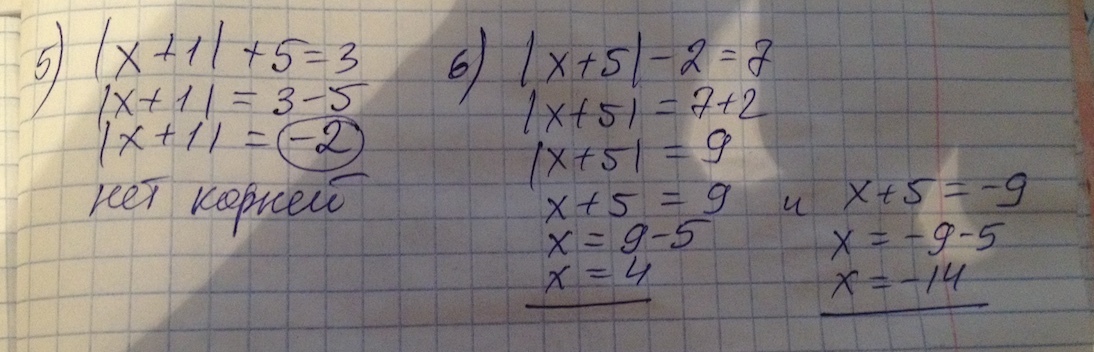 5) |x+1|+5=3
|x+1| = 3-5
|x+1| = -2
нет корней
6) |x+5|-2=7
|x+5| = 7+2
|x+5| = 9
x+5 = 9 и x+5 = -9
x = 9-5 x = -9-5
x = 4 x = -14